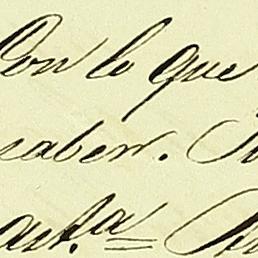 Con lo que
caben.
ast.ª